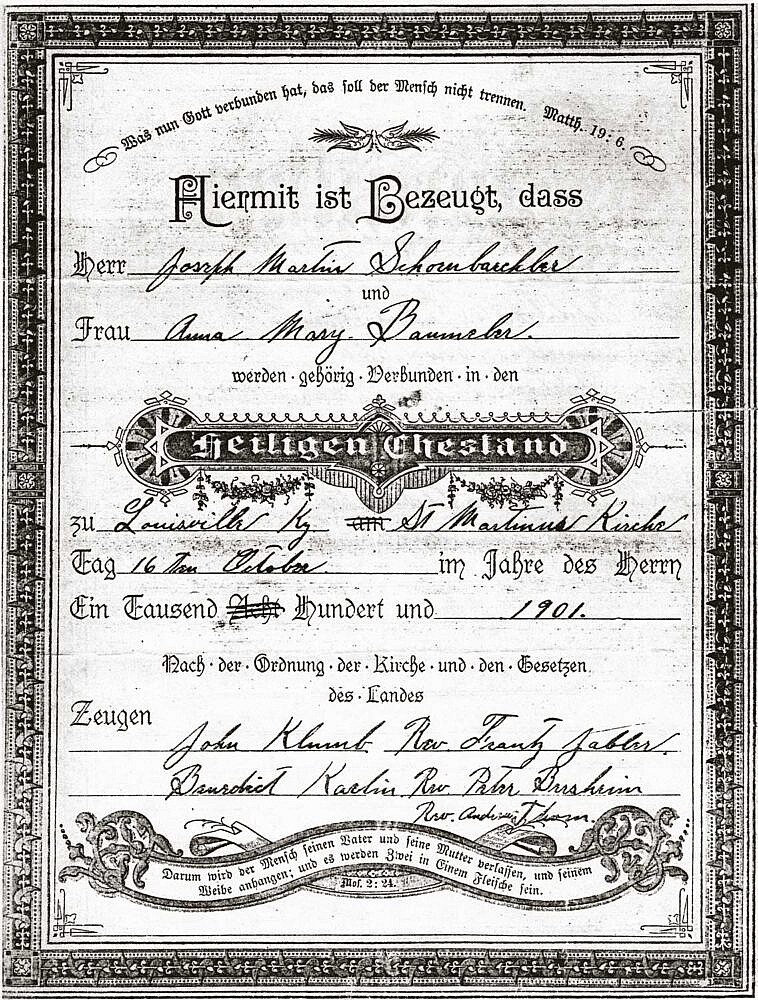 Was nun Gott verbunden hat, das soll der Mensch nicht trennen. Matth. 19: 6.
Hiermit ist Bezeugt, dass
Herr Joseph Martin Schombaechler
und
Frau Anna Mary Baumeler.
werden · gehörig · Verbunden · in · den
Heiligen Ehestand
zu Louisville Ky am St Martinus Kirche
Tag 16 ten October im Jahre des Herrn
Ein Tausend Acht Hundert und 1901.
Nach · der · Ordnung · der · Kirche · und · den · Gesetzen
des · Landes
Zeugen
John Klumb Rev. Frantz
Benedict Kaelin Rev Peter
Rev.
Darum wird der Mensch seinen Vater und seine Mutter verlassen, und seinem
Weibe anhangen; und es werden Zwei in Einem Fleische sein.
Mos. 2: 24.